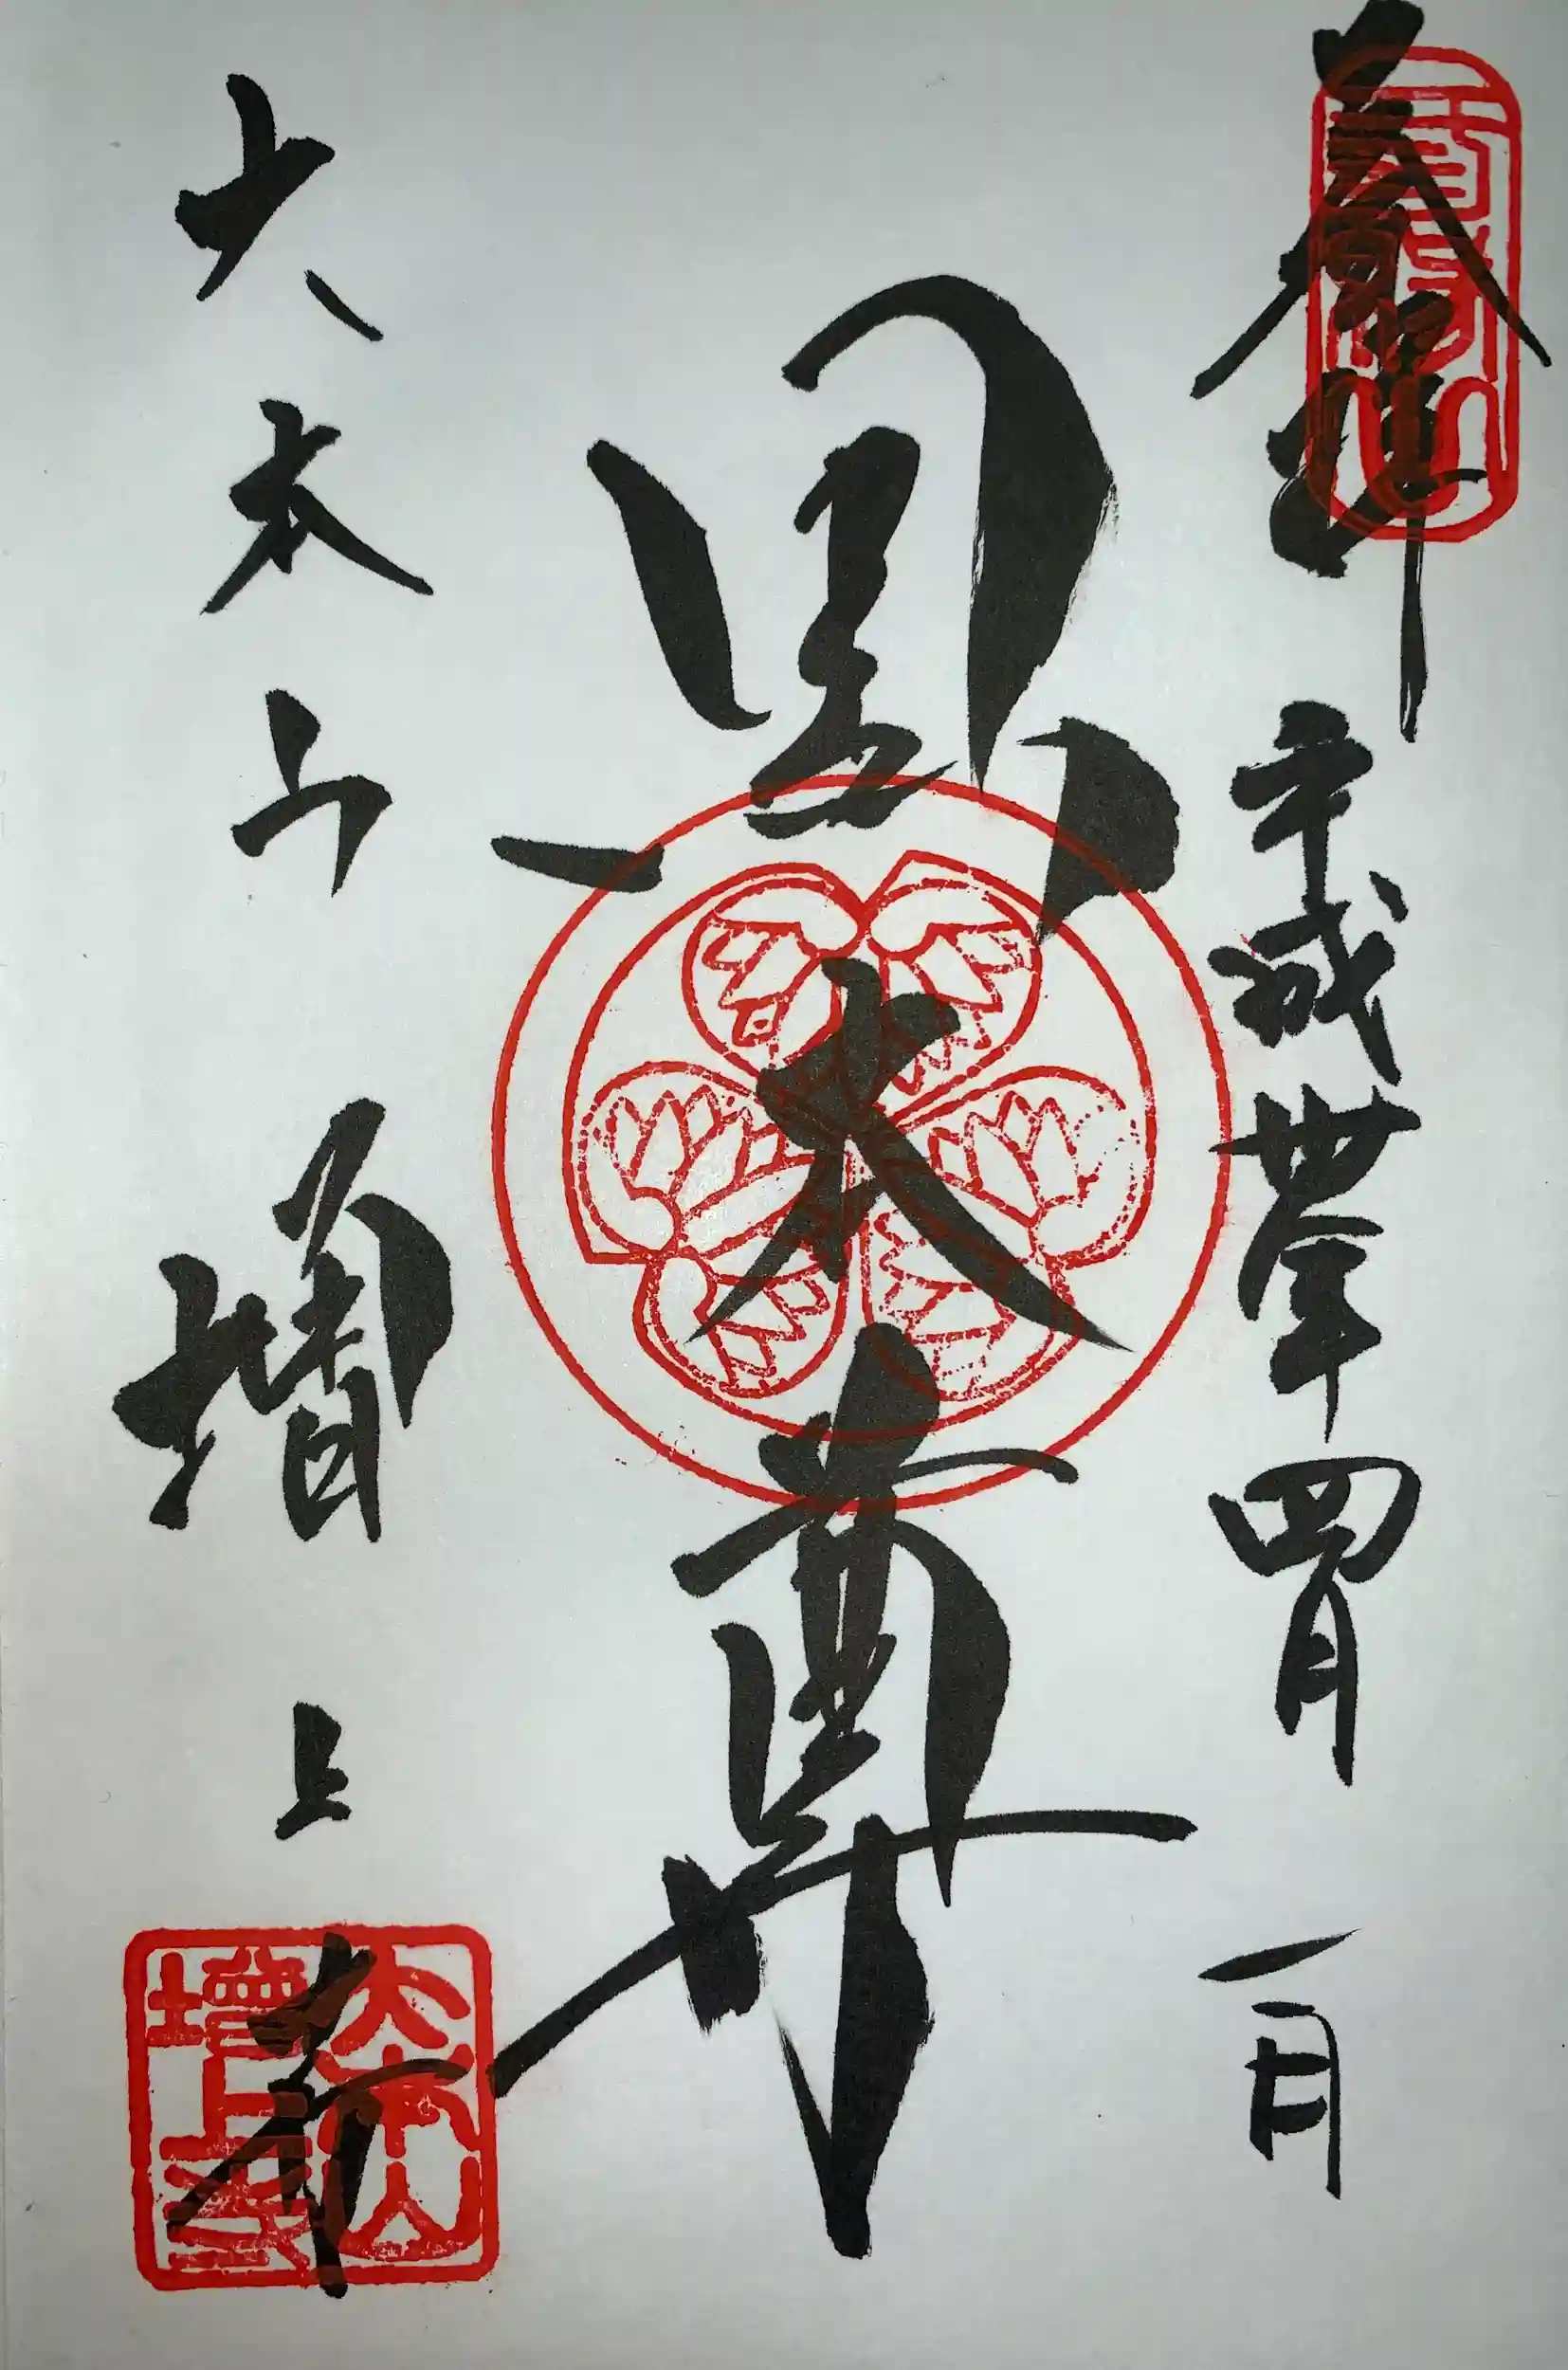 奉拝 平成卅年四月一日
黒本尊
大本山 増上寺
大本山
増上寺